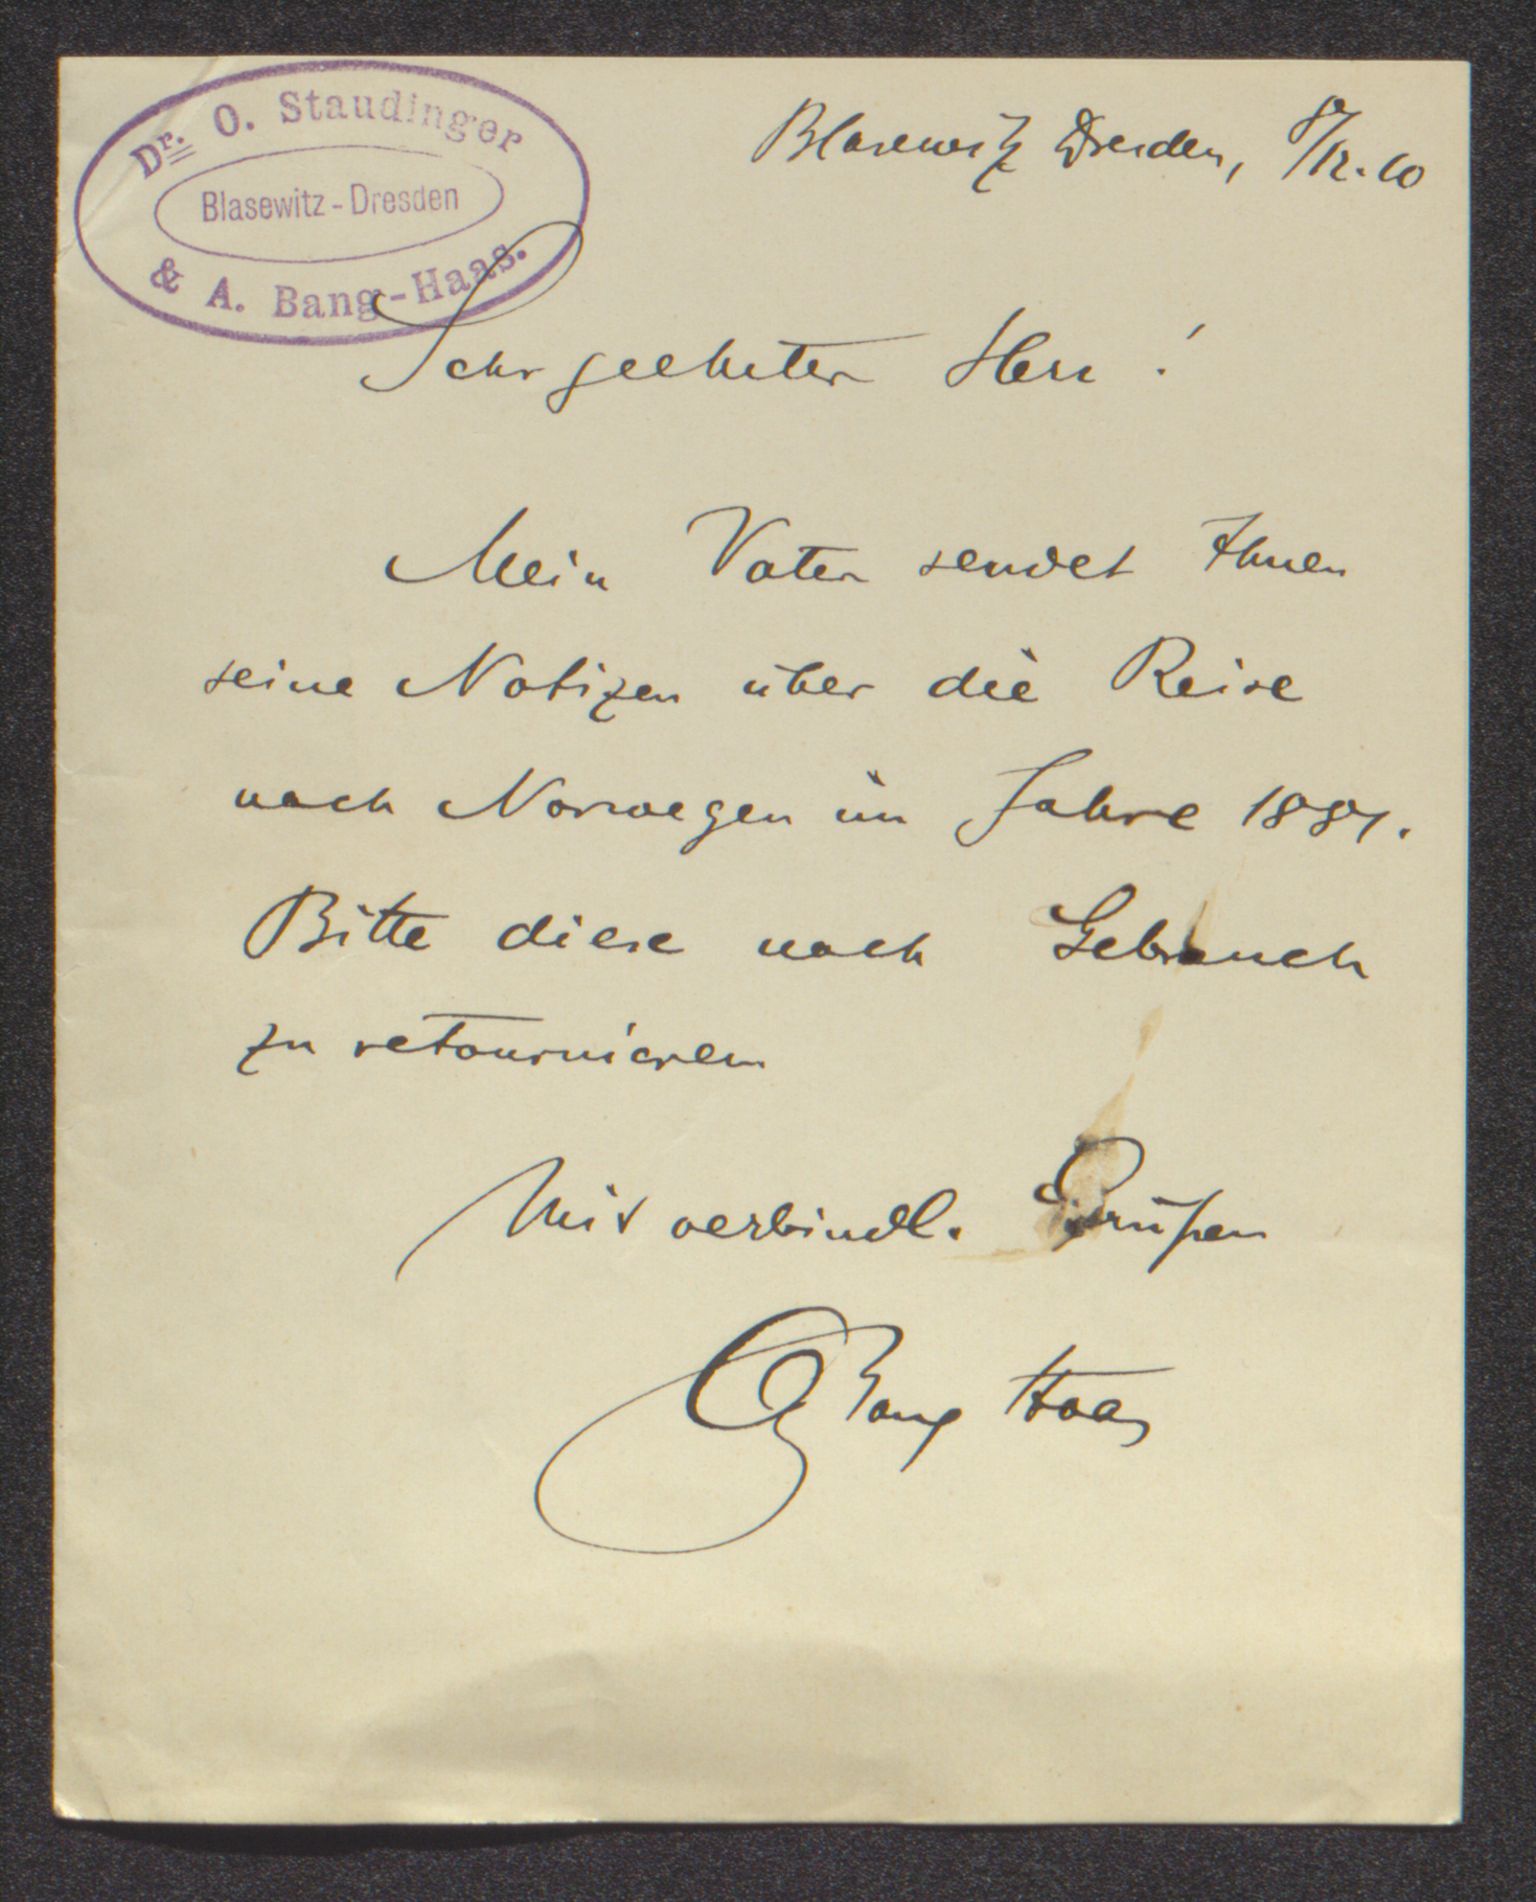 Dr. O. Staudinger
Blasewitz-Dresden
& A. Bang-Haas.
Blasewitz Dresden, 8/12.10
Sehr geehrter Herr!
Mein Vater sendet Ihnen
seine Notizen über die Reise
nach Norwegen im Jahre 1881.
Bitte diese nach Gebrauch
zu retournieren
Mit verbindl. Grüßen
O Bang Haas